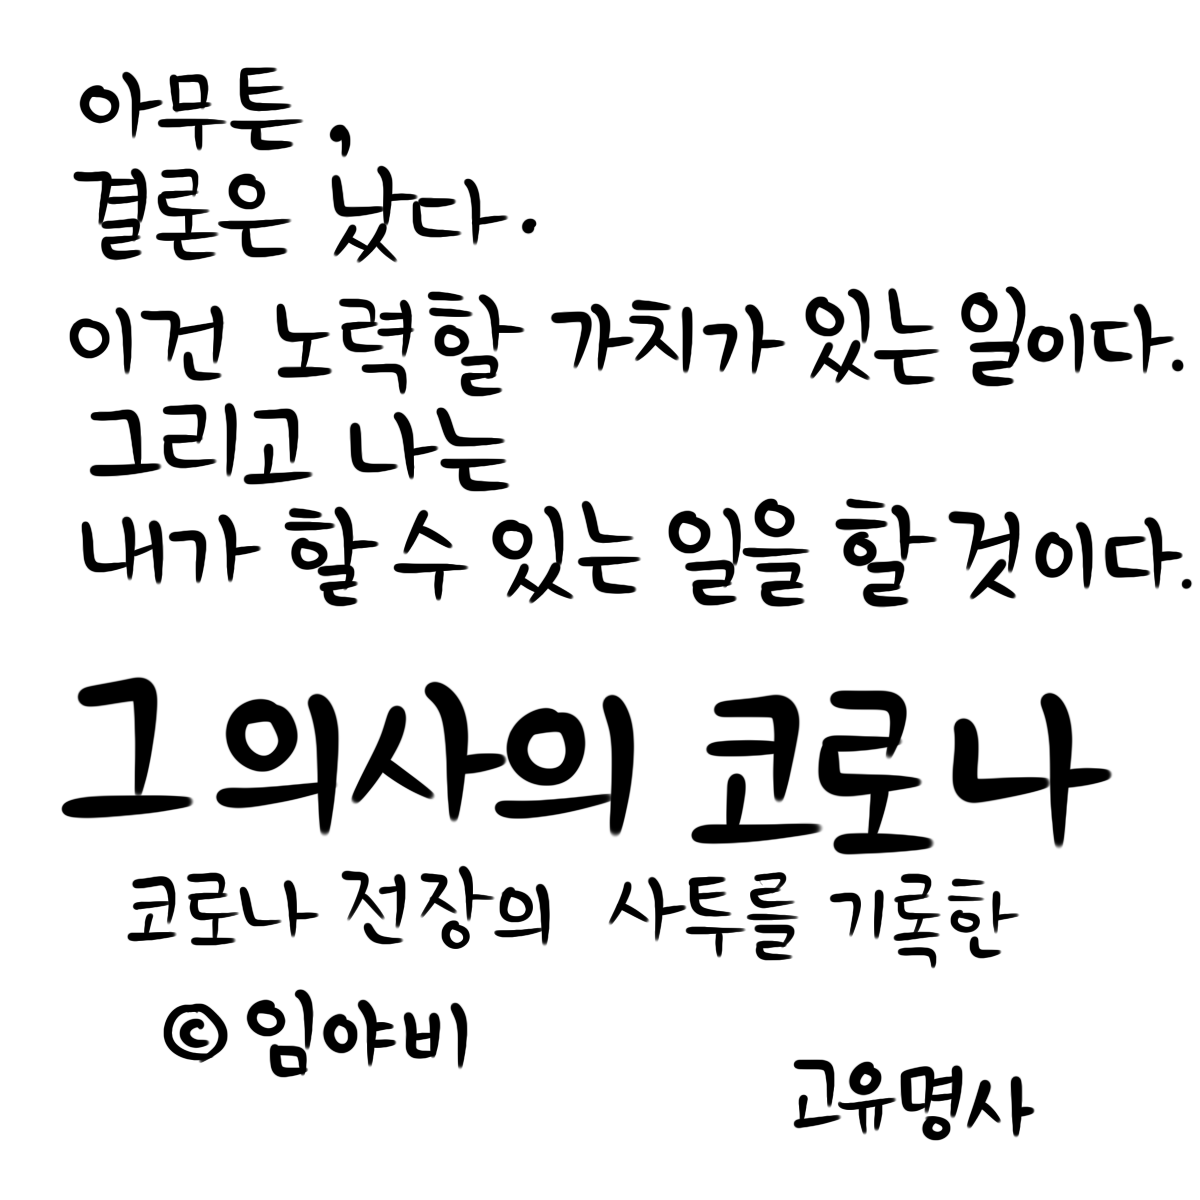 아무튼,
결론은 났다.
이건 노력할 가치가 있는 일이다.
그리고 나는
내가 할 수 있는 일을 할 것이다.
그 의사의 코로나
코로나 전장의 사투를 기록한
© 임야비
고유명사